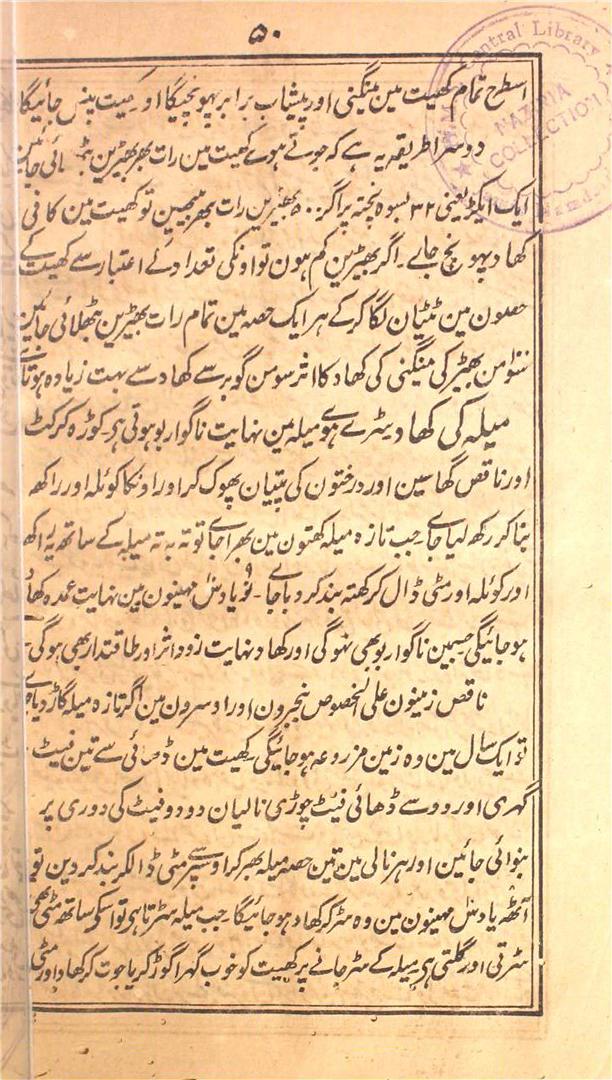 ۵۰
اسطرح تمام کھیت مین مینگنی اور پیشاب برابر پہونچیگا او کھیت پنس جائیگا
Central Library
NAZARIA COLLECTION
دوسرا طریقہ یہ ہے کہ جوتے ہوے کھیت مین رات بھر بھیڑین بٹھائی جائین
ایک ایکڑ یعنی ۳۲ بسوہ پختہ پر اگر ۵۰۰ بھیڑین رات بھر بیٹھین تو کھیت مین کافی
کھاد پہونچ جاے۔ اگر بھیڑین کم ہون تو اونکی تعداد کے اعتبار سے کھیت کے
حصون مین ٹٹیان لگا کر کے ہر ایک حصہ مین تمام رات بھیڑین بٹھلائی جائین
سَو من بھیڑ کی مینگنی کی کھاد کا اثر سو من گوبر سے کھاد سے بہت زیادہ ہوتا ہے
میلہ کی کھاد سڑے ہوے میلہ مین نہایت ناگوار بو ہوتی ہی۔ کوڑہ کرکٹ
اور ناقص گھاسین اور درختون کی پتیان پھوک کر اور اونکا کوئلہ اور راکھ
بنا کر رکھ لیا جاے جب تازہ میلہ کھتون مین بھرا جاے تو تہ بہ تہ میلہ کے ساتھ یہ راکھ
اور کوئلہ اور مٹی ڈال کر کھتہ بند کر دیا جاے۔ نو یا دس مہینون مین نہایت عمدہ کھاد
ہو جائیگی جسمین ناگوار بو بھی نہوگی اور کھاد نہایت زود اثر اور طاقتدار بھی ہوگی۔
ناقص زمینون علی الخصوص بنجرون اور اوسرون مین اگر تازہ میلہ گاڑ دیا جاے
تو ایک سال مین وہ زمین مزروعہ ہو جائیگی۔ کھیت مین ڈھائی سے تین فیٹ
گہری اور دو سے ڈھائی فیٹ چوڑی نالیان دو دو فیٹ کی دوری پر
بنوائی جائین اور ہر نالی مین تین حصہ میلہ بھر کر اوسپر سے مٹی ڈالکر بند کر دین تو
آٹھ یا دس مہینون مین وہ سڑ کر کھاد ہو جائیگا۔ جب میلہ سڑتا ہی تو اسکی ساتھ مٹی بھی
سڑتی اور گلتی ہی۔ میلہ کے سڑ جانے پر کھیت کو خوب گہرا گوڑ کر یا جوت کر کھاد اور مٹی